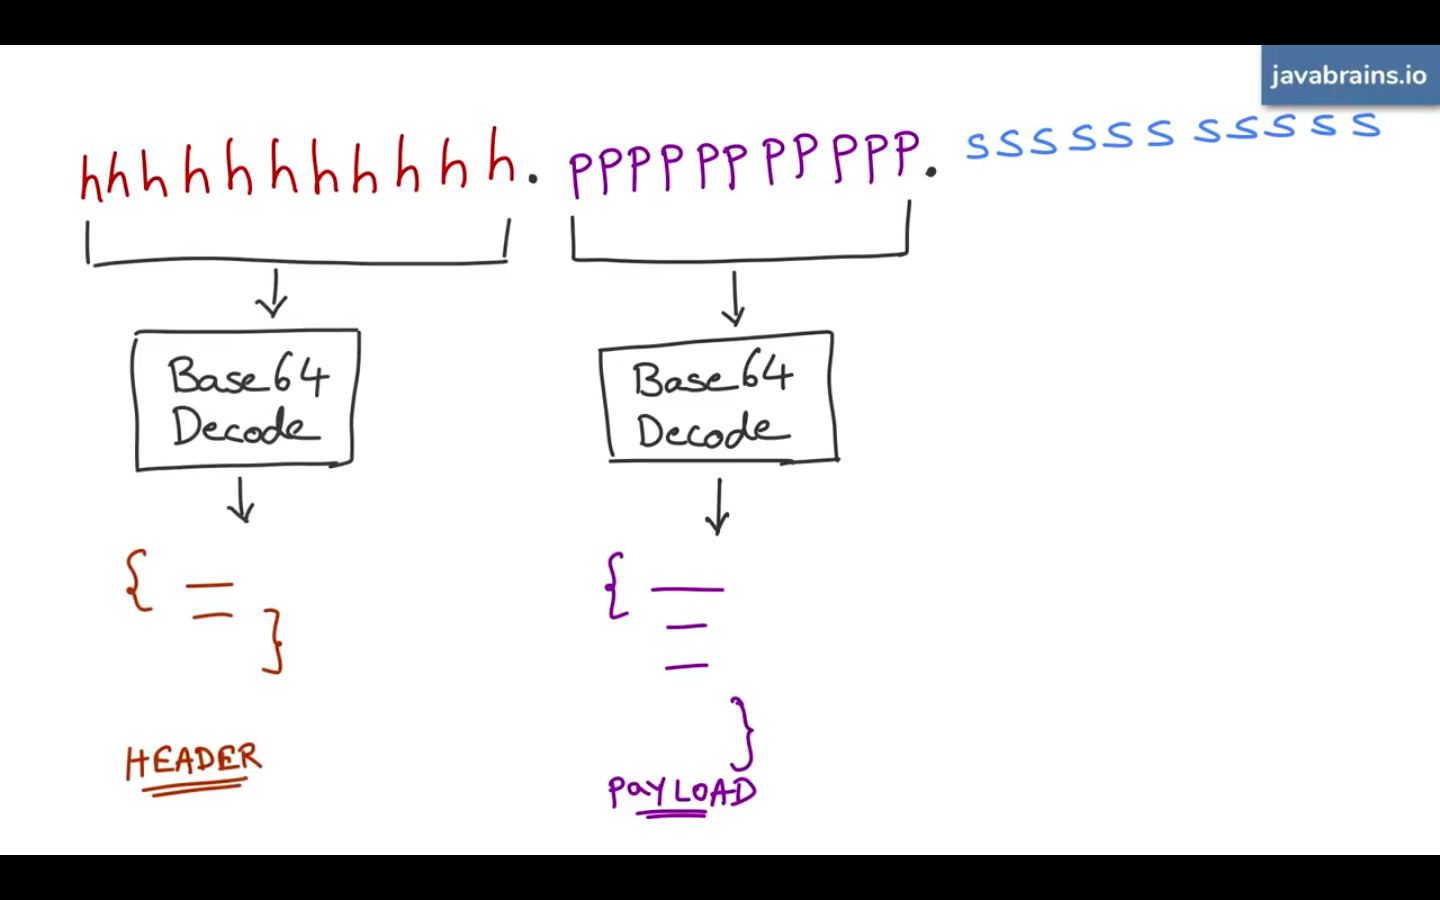 javabrains.io
hhhhhhhhhhh.PPPPPPPPPPP.sssssssssss
Base64 Base64
Decode Decode
{ }
{ }
HEADER
PAYLOAD